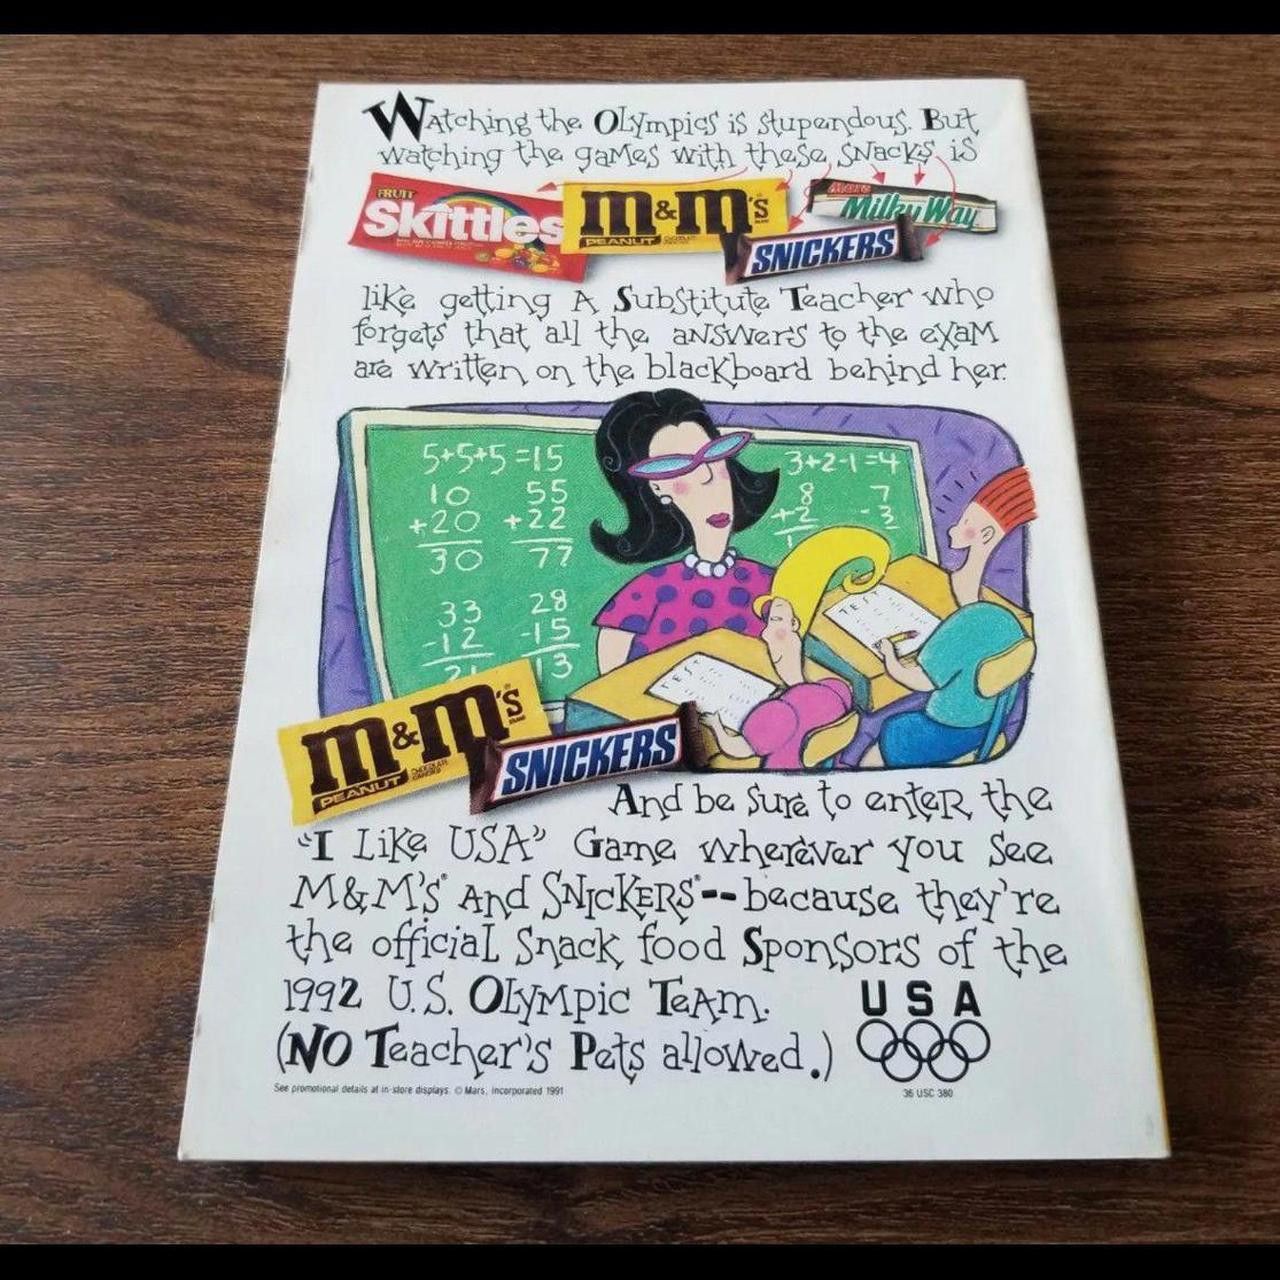 Watching the Olympics is stupendous. But
watching the games with these snacks is
FRUIT
Skittles
m&m's
PEANUT
Mars
Milky Way
SNICKERS
like getting A Substitute Teacher who
forgets that all the answers to the exam
are written on the blackboard behind her.
5+5+5=15
3+2-1=4
10
+20
30
55
+22
77
8
+2
1
7
-3
33
-12
21
28
-15
13
TEST
TEST
m&m's
PEANUT
CHOCOLATE
CANDIES
SNICKERS
And be sure to enter the
"I Like USA" Game wherever you see
M&M's® And SNICKERS®--because they're
the official snack food Sponsors of the
1992 U.S. Olympic Team.
(NO Teacher's Pets allowed.)
USA
See promotional details at in-store displays. © Mars, Incorporated 1991
36 USC 380